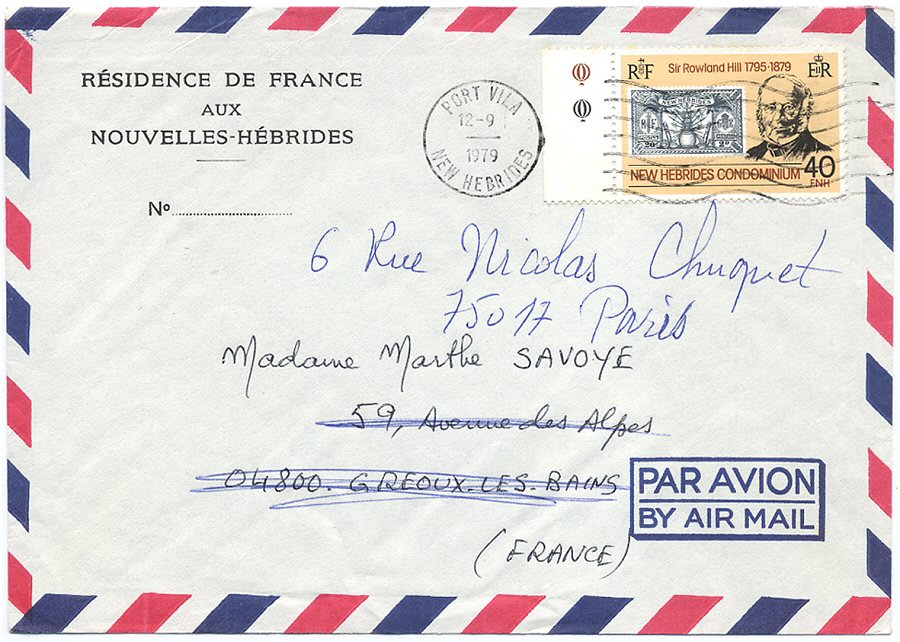 RÉSIDENCE DE FRANCE
AUX
NOUVELLES-HÉBRIDES
Nº
PORT VILA
12-9
1979
NEW HEBRIDES
RF
Sir Rowland Hill 1795·1879
EIIR
NEW HEBRIDES
RF
NEW HEBRIDES CONDOMINIUM
40
FNH
6 Rue Nicolas Chuquet
75017 Paris
Madame Marthe SAVOYE
59, Avenue des Alpes
04800. GREOUX-LES-BAINS
(FRANCE)
PAR AVION
BY AIR MAIL